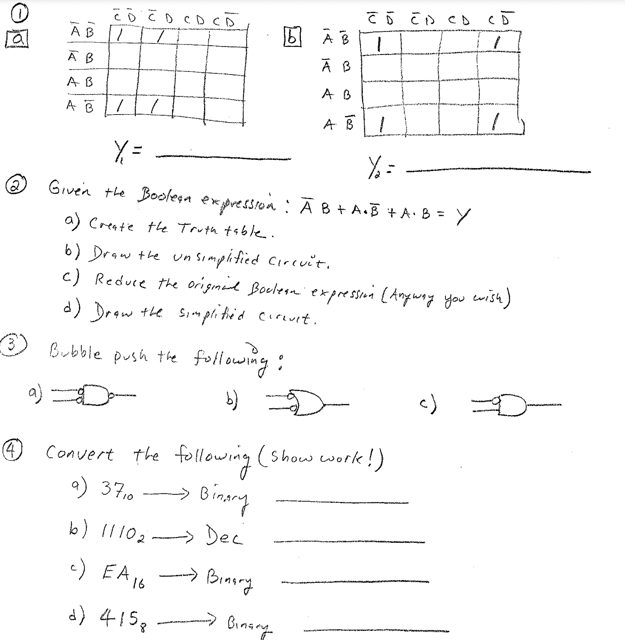 ①
a
C̅ D̅ C̅ D C D C D̅
A̅ B̅ 1 1
A̅ B
A B
A B̅ 1 1
Y₁ =
b
C̅ D̅ C̅ D C D C D̅
A̅ B̅ 1 1
A̅ B
A B
A B̅ 1 1
Y₂ =
② Given the Boolean expression: A̅ B + A•B̅ + A•B = Y
a) Create the Truth table.
b) Draw the unsimplified circuit.
c) Reduce the original Boolean expression (Anyway you wish)
d) Draw the simplified circuit.
③ Bubble push the following:
a) b) c)
④ Convert the following (show work!)
a) 37₁₀ → Binary
b) 1110₂ → Dec
c) EA₁₆ → Binary
d) 415₈ → Binary